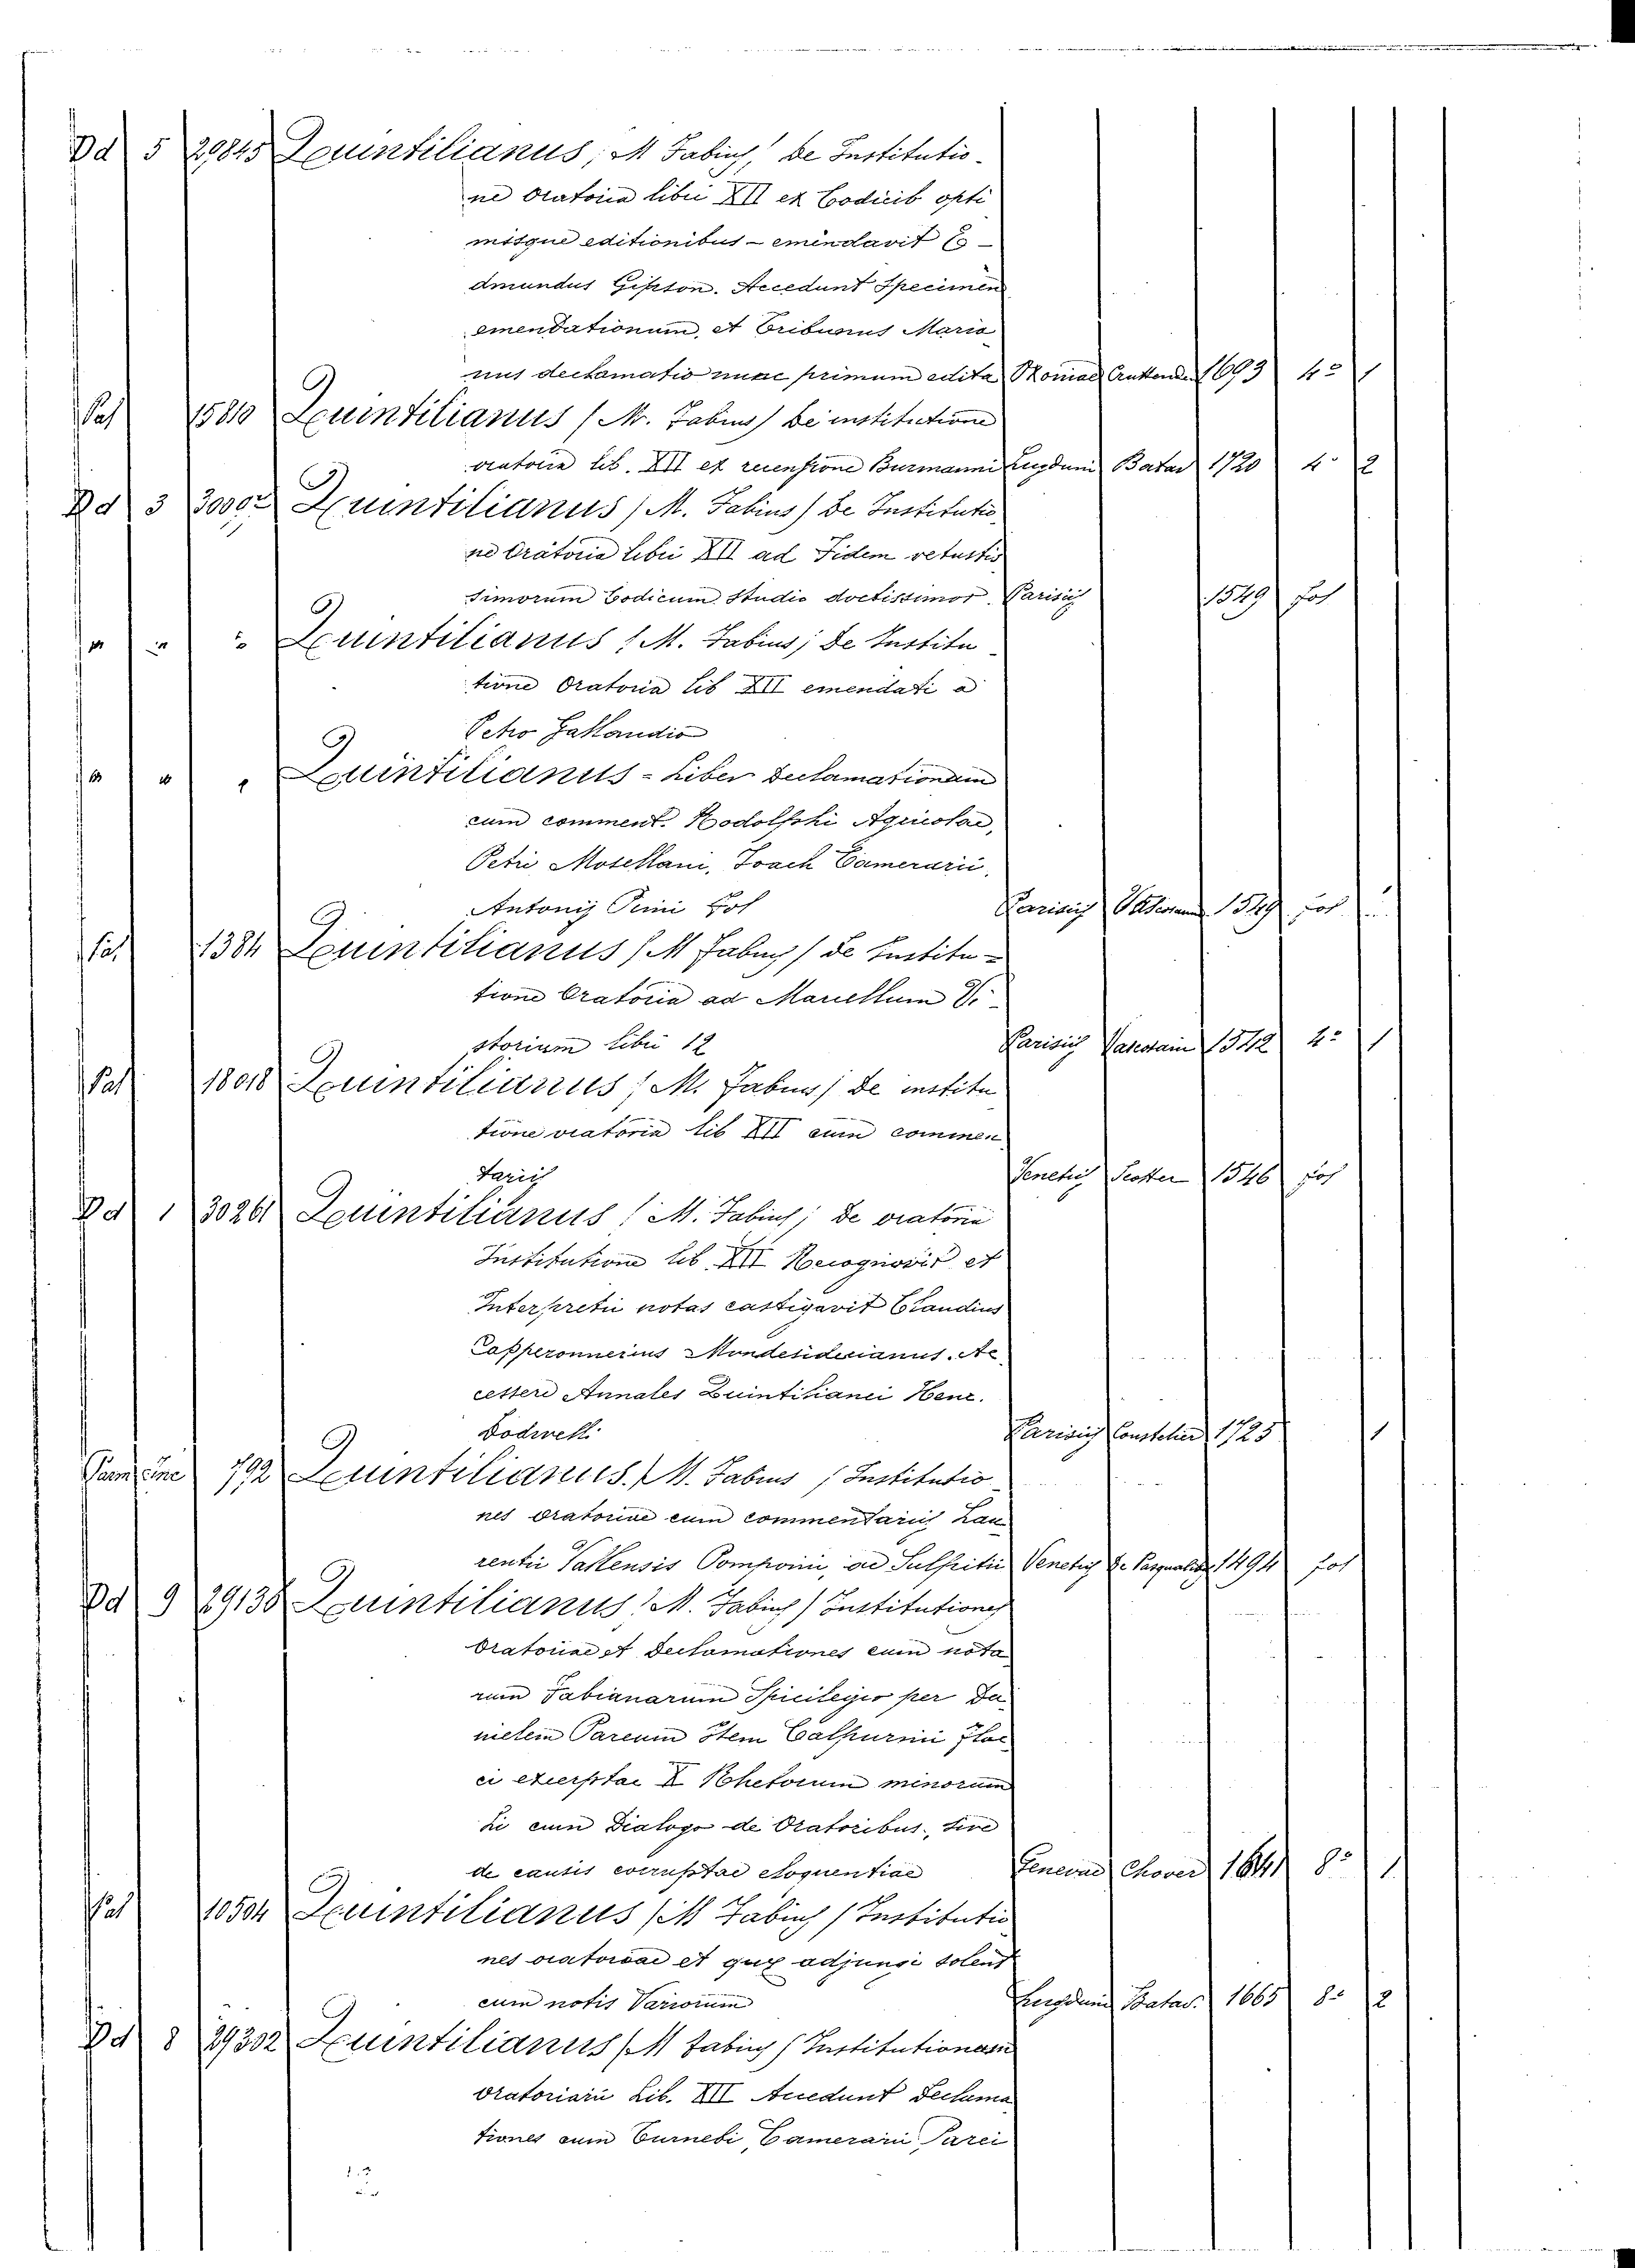 Dd 5 29845 Quintilianus, M Fabius, de Institutio-
ne Oratoria libri XII ex Codicib opti
misque editionibus - emendavit E-
dmundus Gipson. Accedunt Specimen
emendationum, et Tribunus Maria
nus declamatio nunc primum edita 1693 4º 1
15810 Quintilianus (M. Fabius) de institutione
oratoria lib. XII ex recensione Burmanni Lugduni Batav 1720 4º 2
Dd 3 Quintilianus (M. Fabius) de Institutio
ne Oratoria libri XII ad Fidem vetustis
simorum Codicum Studio doctissimor. Parisiis 1549 fol
" " " Quintilianus (M. Fabius) de Institu-
tione Oratoria lib XII emendati a
Petro Gallandio
" " " Quintilianus - Liber declamationum
cum comment. Rodolphi Agricolae,
Petri Mosellani, Joach Camerarii,
Antonii Pini fol Parisiis 1549 fol
1384 Quintilianus (M Fabius) de Institu-
tione Oratoria ad Marcellum Vi-
storium libri 12 Parisiis Vascosain 1542 4º 1
18018 Quintilianus (M. Fabius) de institu
tione oratoria lib XII cum commen
tariis Venetiis Scotten 1546 fol
Dd 1 30261 Quintilianus (M. Fabius) de oratoria
Institutione lib. XII Recognovit et
Interpretii notas castigavit Claudius
Capperonnerius Mondesiderianus. Ac
cessere Annales Quintilianei Henr.
Dodwell. Parisiis Coustelier 1725 1
792 Quintilianus. (M. Fabius) Institutio
nes oratoriae cum commentariis Lau
rentii Vallensis Pomponii, ac Sulpitii Venetiis de Pasqualibus 1494 fol
Dd 9 29138 Quintilianus (M. Fabius) Institutiones
Oratoriae et declamationes cum nota
rum Fabianarum Spicilegio per Da
nielem Pareum Item Calpurnii Flac
ci excerptae X Rhetorum minorum
Li cum Dialogo de Oratoribus, sive
de causis corruptae eloquentiae Genevae Chover 1641 8º 1
10504 Quintilianus (M Fabius) Institutio
nes oratoriae et quæ adjungi solent
cum notis Variorum Lugduni Batav. 1665 8º 2
Dd 8 29302 Quintilianus (M Fabius) Institutionum
oratoriarii Lib. XII Accedunt Declama
tiones cum Turnebi, Camerarii Parei